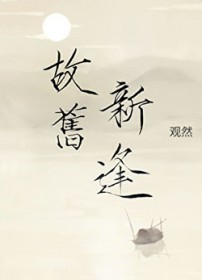 故舊
新逢
观然